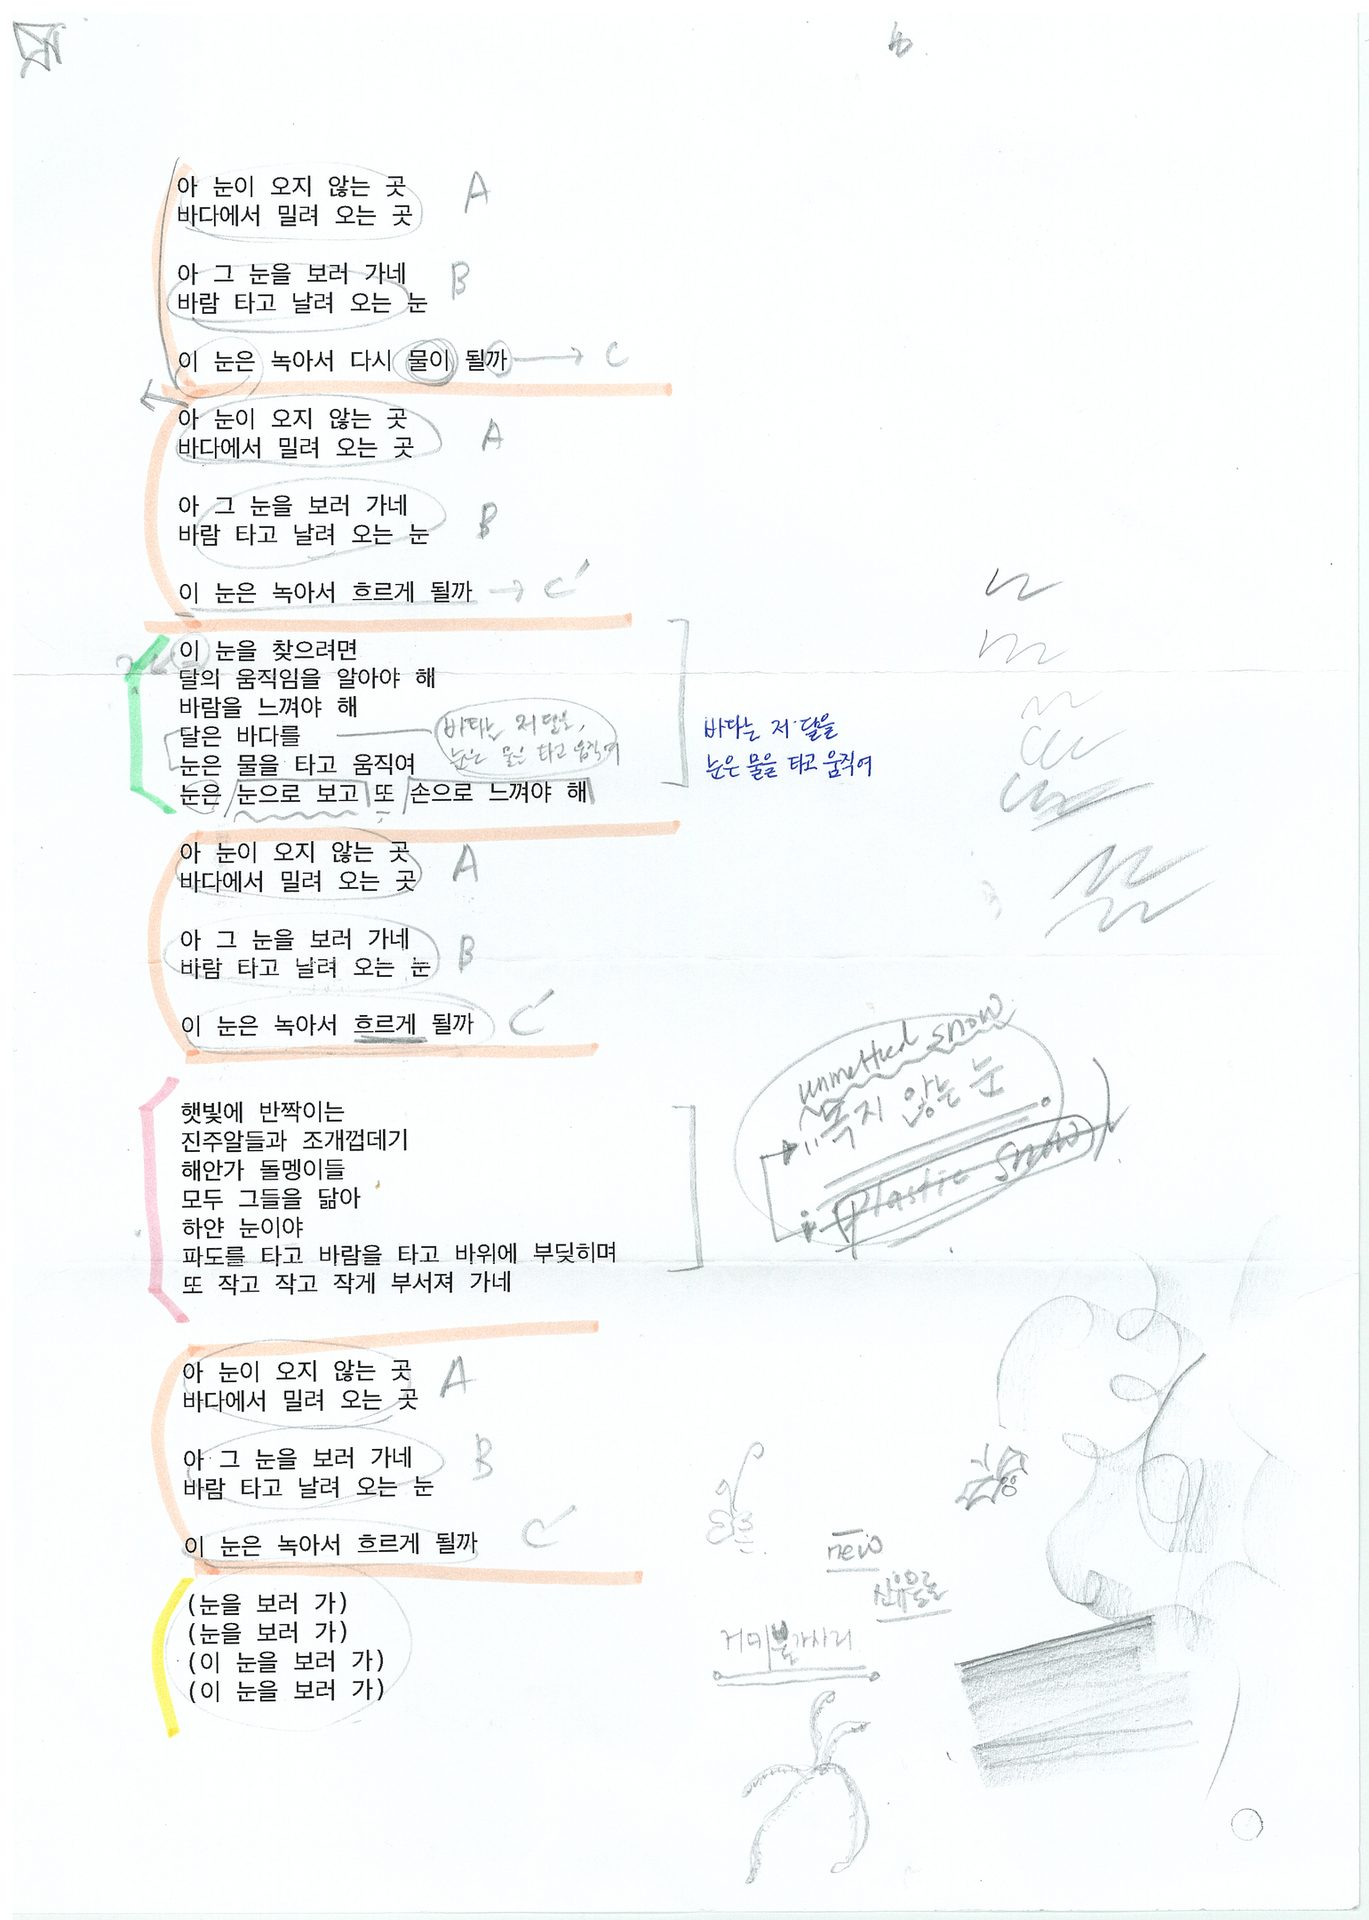 아 눈이 오지 않는 곳 A
바다에서 밀려 오는 곳
아 그 눈을 보러 가네 B
바람 타고 날려 오는 눈
이 눈은 녹아서 다시 물이 될까 → C
아 눈이 오지 않는 곳
바다에서 밀려 오는 곳 A
아 그 눈을 보러 가네
바람 타고 날려 오는 눈 B
이 눈은 녹아서 흐르게 될까 → C'
이 눈을 찾으려면
달의 움직임을 알아야 해
바람을 느껴야 해
달은 바다를
눈은 물을 타고 움직여
바다는 저 달을,
눈은 물을 타고 움직여
바다는 저 달을
눈은 물을 타고 움직여
눈은 눈으로 보고 또 손으로 느껴야 해
아 눈이 오지 않는 곳 A
바다에서 밀려 오는 곳
아 그 눈을 보러 가네 B
바람 타고 날려 오는 눈
이 눈은 녹아서 흐르게 될까 C'
unmelted snow
녹지 않는 눈
(Plastic Snow)
햇빛에 반짝이는
진주알들과 조개껍데기
해안가 돌멩이들
모두 그들을 닮아
하얀 눈이야
파도를 타고 바람을 타고 바위에 부딪히며
또 작고 작고 작게 부서져 가네
아 눈이 오지 않는 곳 A
바다에서 밀려 오는 곳
아 그 눈을 보러 가네 B
바람 타고 날려 오는 눈
이 눈은 녹아서 흐르게 될까 C'
new
거미불가사리
(눈을 보러 가)
(눈을 보러 가)
(이 눈을 보러 가)
(이 눈을 보러 가)